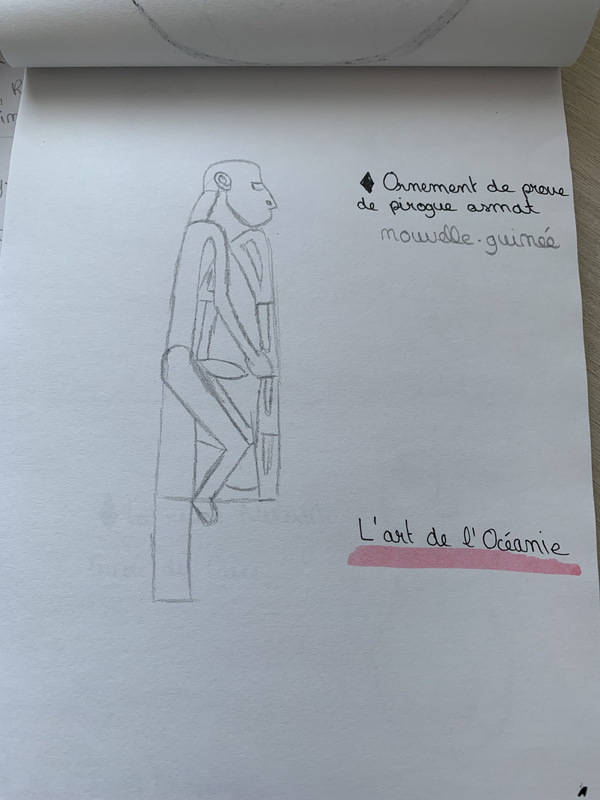 ♦ Ornement de proue
de pirogue asmat
nouvelle-guinée
L'art de l'Océanie